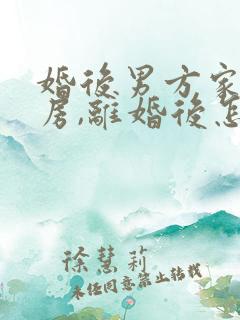 婚後男方家
房,離婚後怎
徐慧莉
未经同意禁止转载